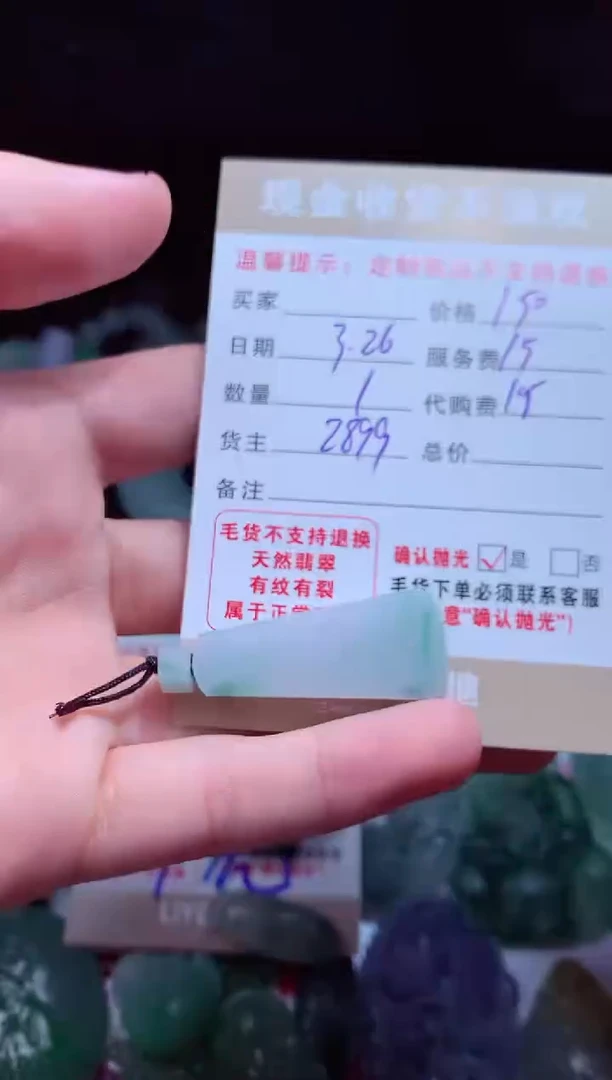 温馨提示：
买家 价格 150
日期 3.26 服务费 15
数量 1 代购费 15
货主 2899 总价
备注
毛货不支持退换
天然翡翠
有纹有裂
属于正常
确认抛光 是 否
毛货下单必须联系客服
意“确认抛光”)
LIVE